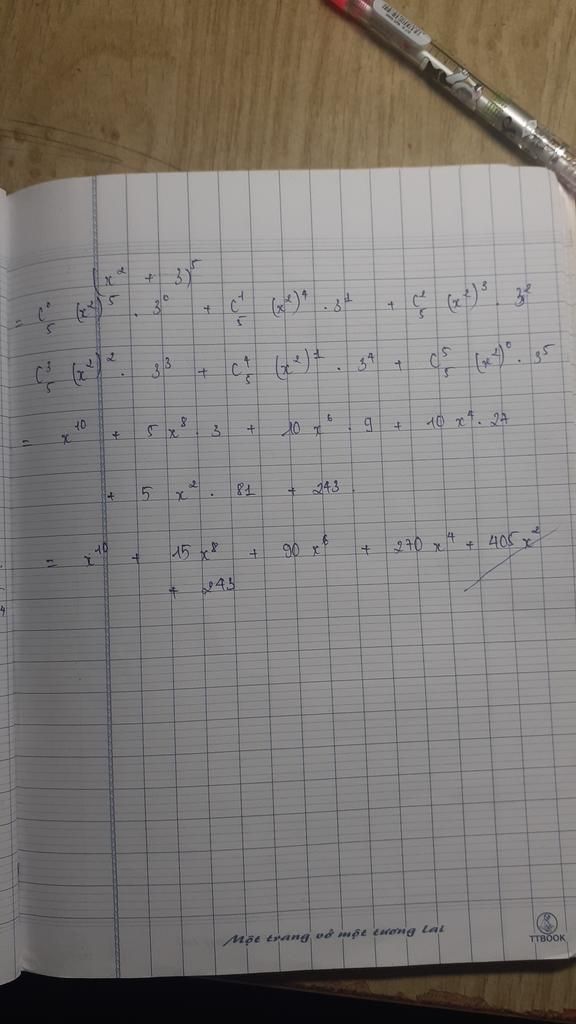 (x² + 3)⁵
= C⁰₅ (x²)⁵ . 3⁰ + C¹₅ (x²)⁴ . 3¹ + C²₅ (x²)³ . 3²
C³₅ (x²)² . 3³ + C⁴₅ (x²)¹ . 3⁴ + C⁵₅ (x²)⁰ . 3⁵
= x¹⁰ + 5 x⁸ . 3 + 10 x⁶ . 9 + 10 x⁴ . 27
+ 5 x² . 81 + 243.
= x¹⁰ + 15 x⁸ + 90 x⁶ + 270 x⁴ + 405 x²
+ 243
4
Một trang vở một tương lai
TTBOOK